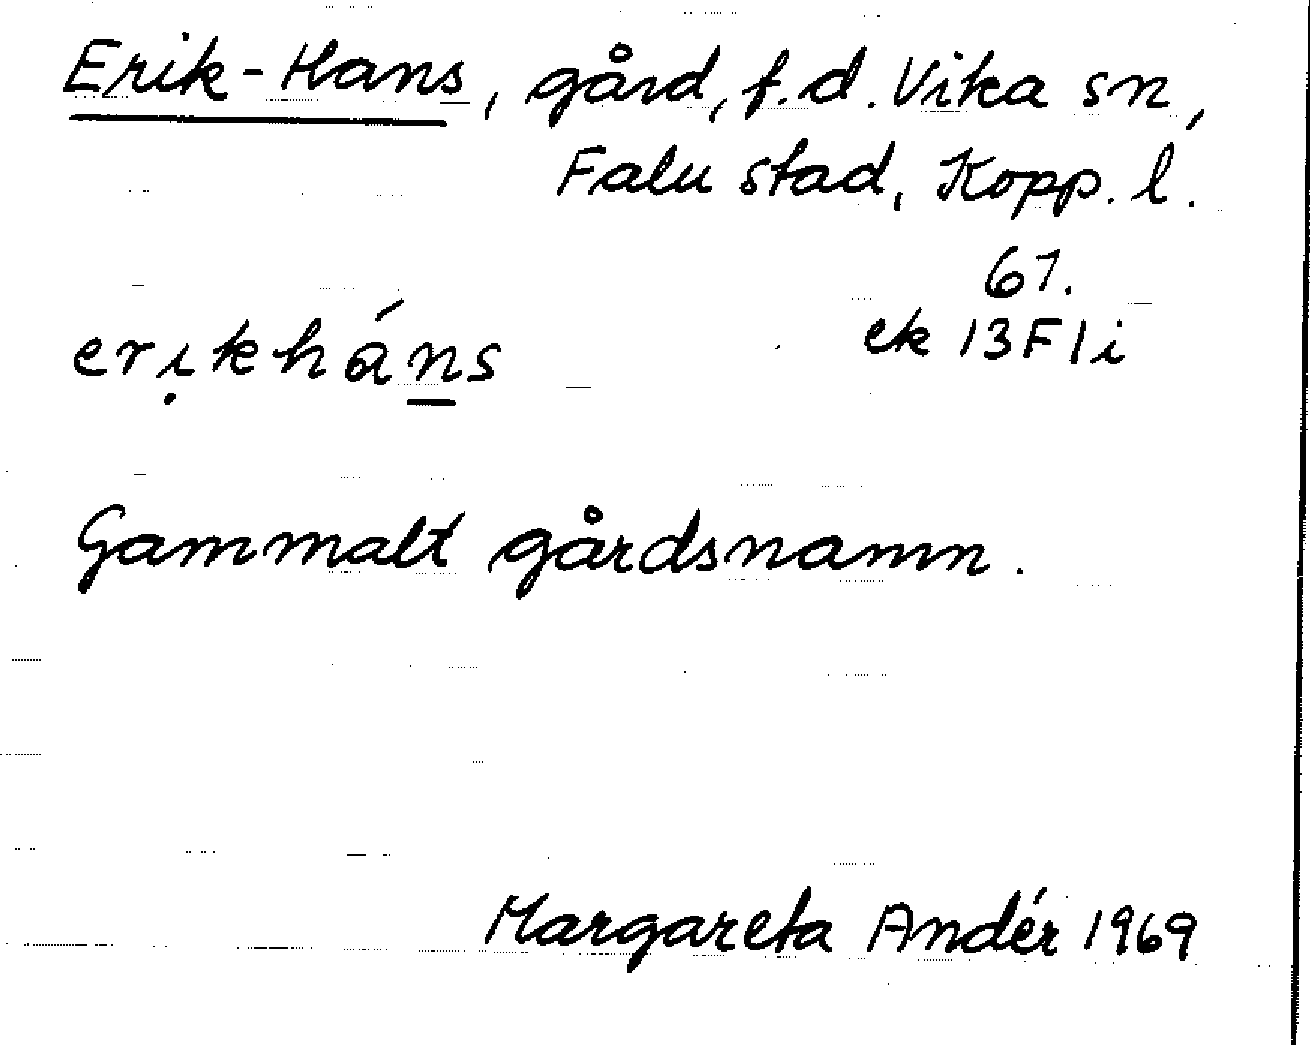 Erik-Hans, gård, f.d. Vika sn,
Falu stad, Kopp. l.
67.
ek 13F1i
erịkháns
Gammalt gårdsnamn.
Margareta Andér 1969